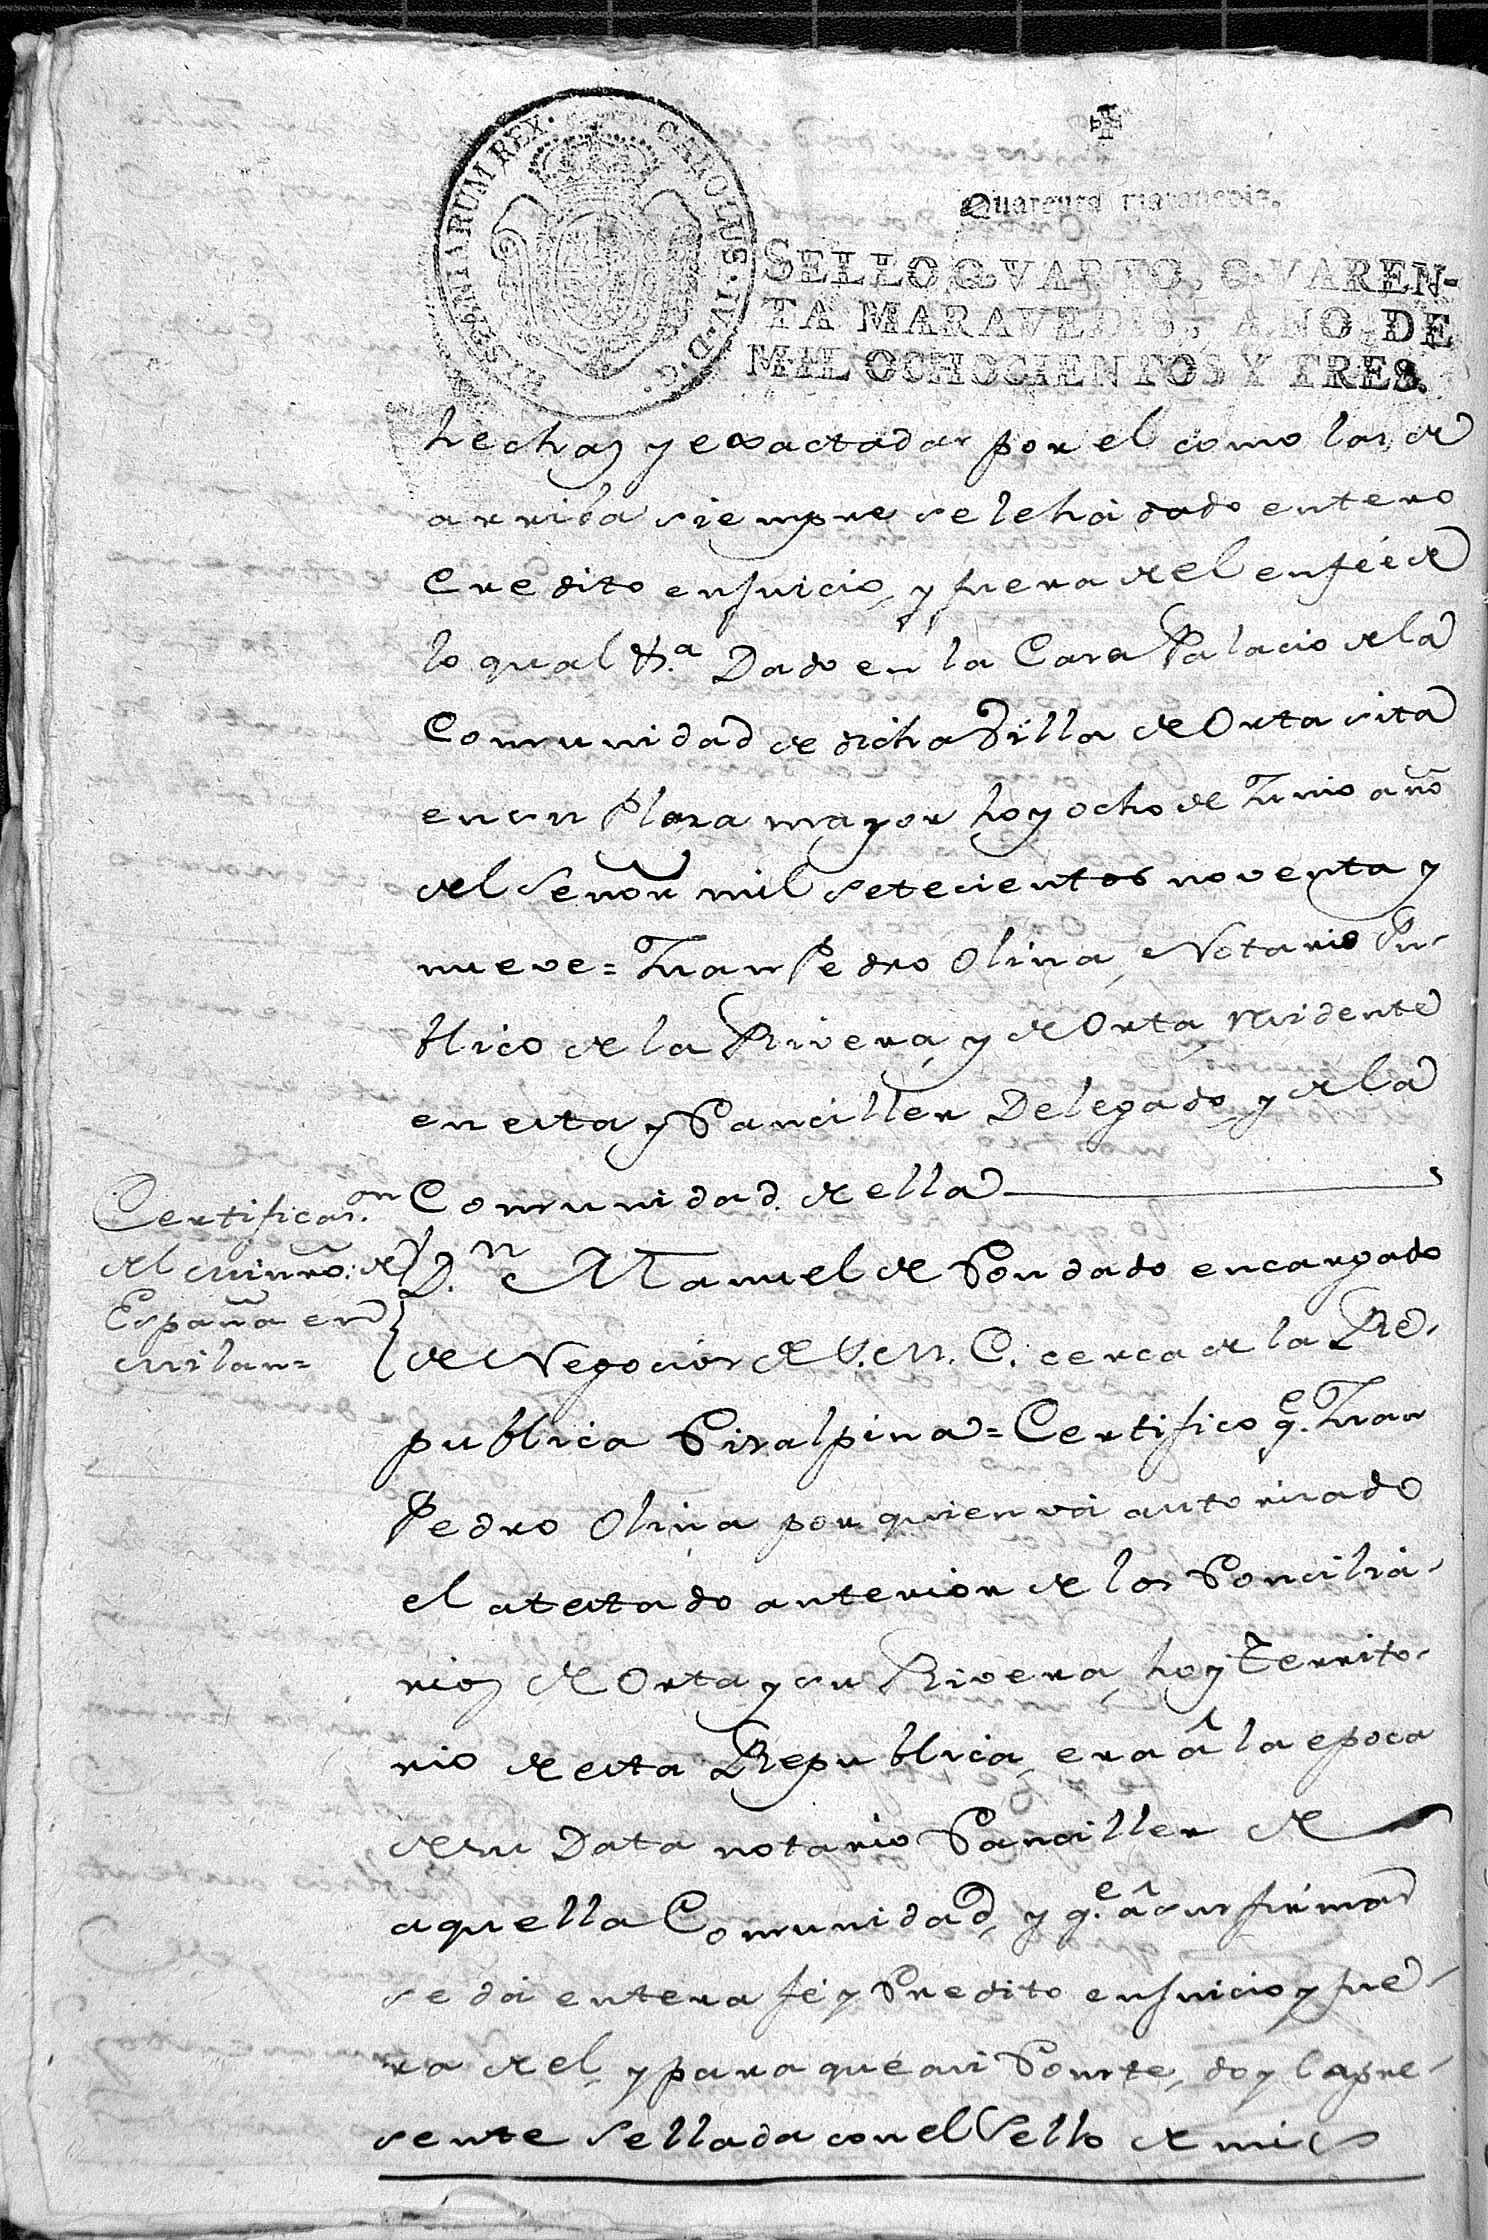 HISPANIARUM REX. CAROLUS. IV. D. G.
Quarenta maravedis.
SELLO QVARTO, QVAREN-
TA MARAVEDIS, AÑO DE
MIL OCHOCIENTOS Y TRES.
hechas y exactadas por el como las de
arriba siempre se le há dado entero
Credito en Juicio, y fuera de el en fée de
lo qual &.a Dado en la Casa Palacio de la
Comunidad de dicha Villa de Orta sita
en su Plaza mayor hoy ocho de Junio año
del Señor mil setecientos noventa y
nueve = Juan Pedro Olina, Notario Pu-
blico de la Rivera, y de Orta, residente
en esta y Canciller Delegado, y de la
Comunidad de ella
Certificas.on
del Minrõ. de
España en
Milan =
D.n Manuel de Condado encargado
de Negocios de S. M. C. cerca de la Re-
publica Cisalpina = Certifico q.e Juan
Pedro Olina por quien vá autorizado
el atestado anterior de los Concilia-
rios de Orta y su Rivera, hoy Territo-
rio de esta Republica, era â la epoca
de su Data notario Canciller de
aquella Comunidad, y q.e â sus firmas
se dá entera fé y Credito en Juicio y fue-
ra de el, y para que asi Conste, doy la pre-
sente Sellada con el Sello de mis